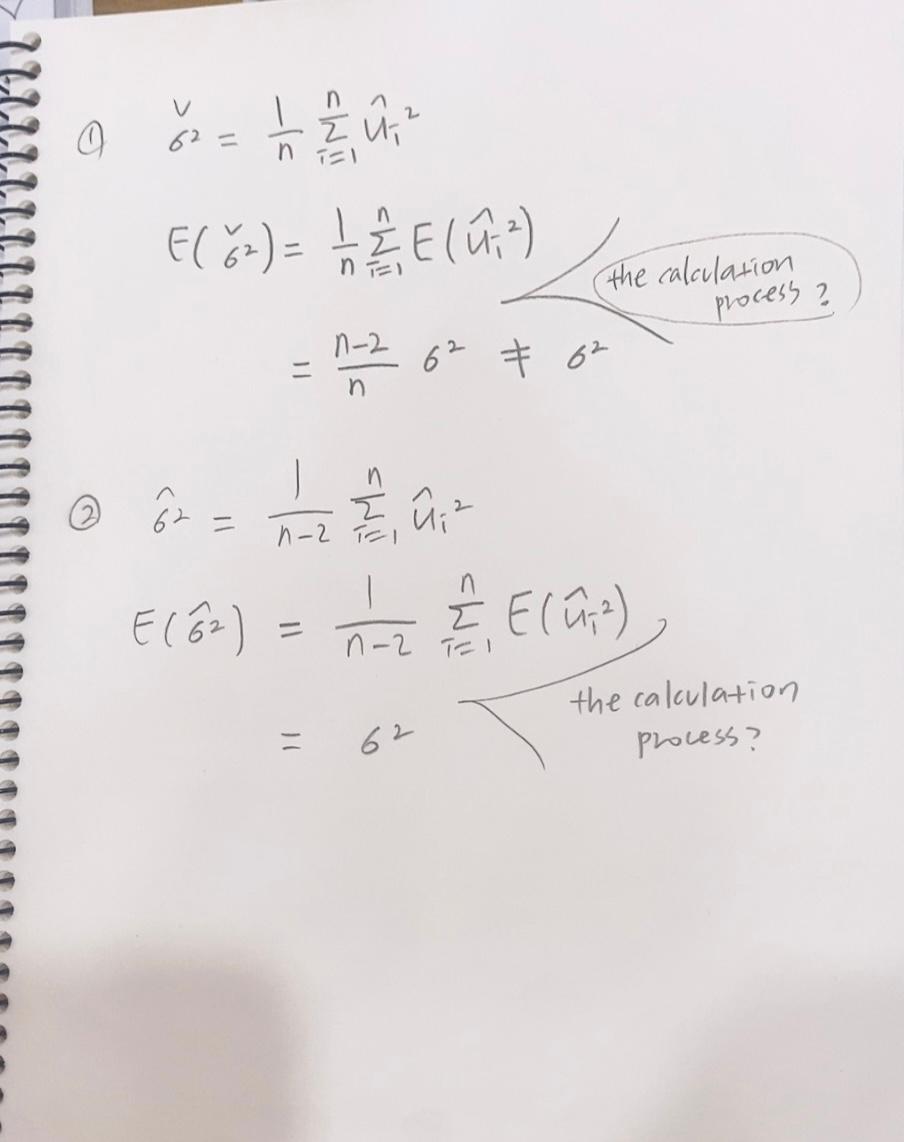 ① σ̌² = 1/n Σᵢ₌₁ⁿ ûᵢ²
E(σ̌²) = 1/n Σᵢ₌₁ⁿ E(ûᵢ²)
the calculation
process?
= n-2/n σ² ≠ σ²
② σ̂² = 1/n-2 Σᵢ₌₁ⁿ ûᵢ²
E(σ̂²) = 1/n-2 Σᵢ₌₁ⁿ E(ûᵢ²)
the calculation
process?
= σ²